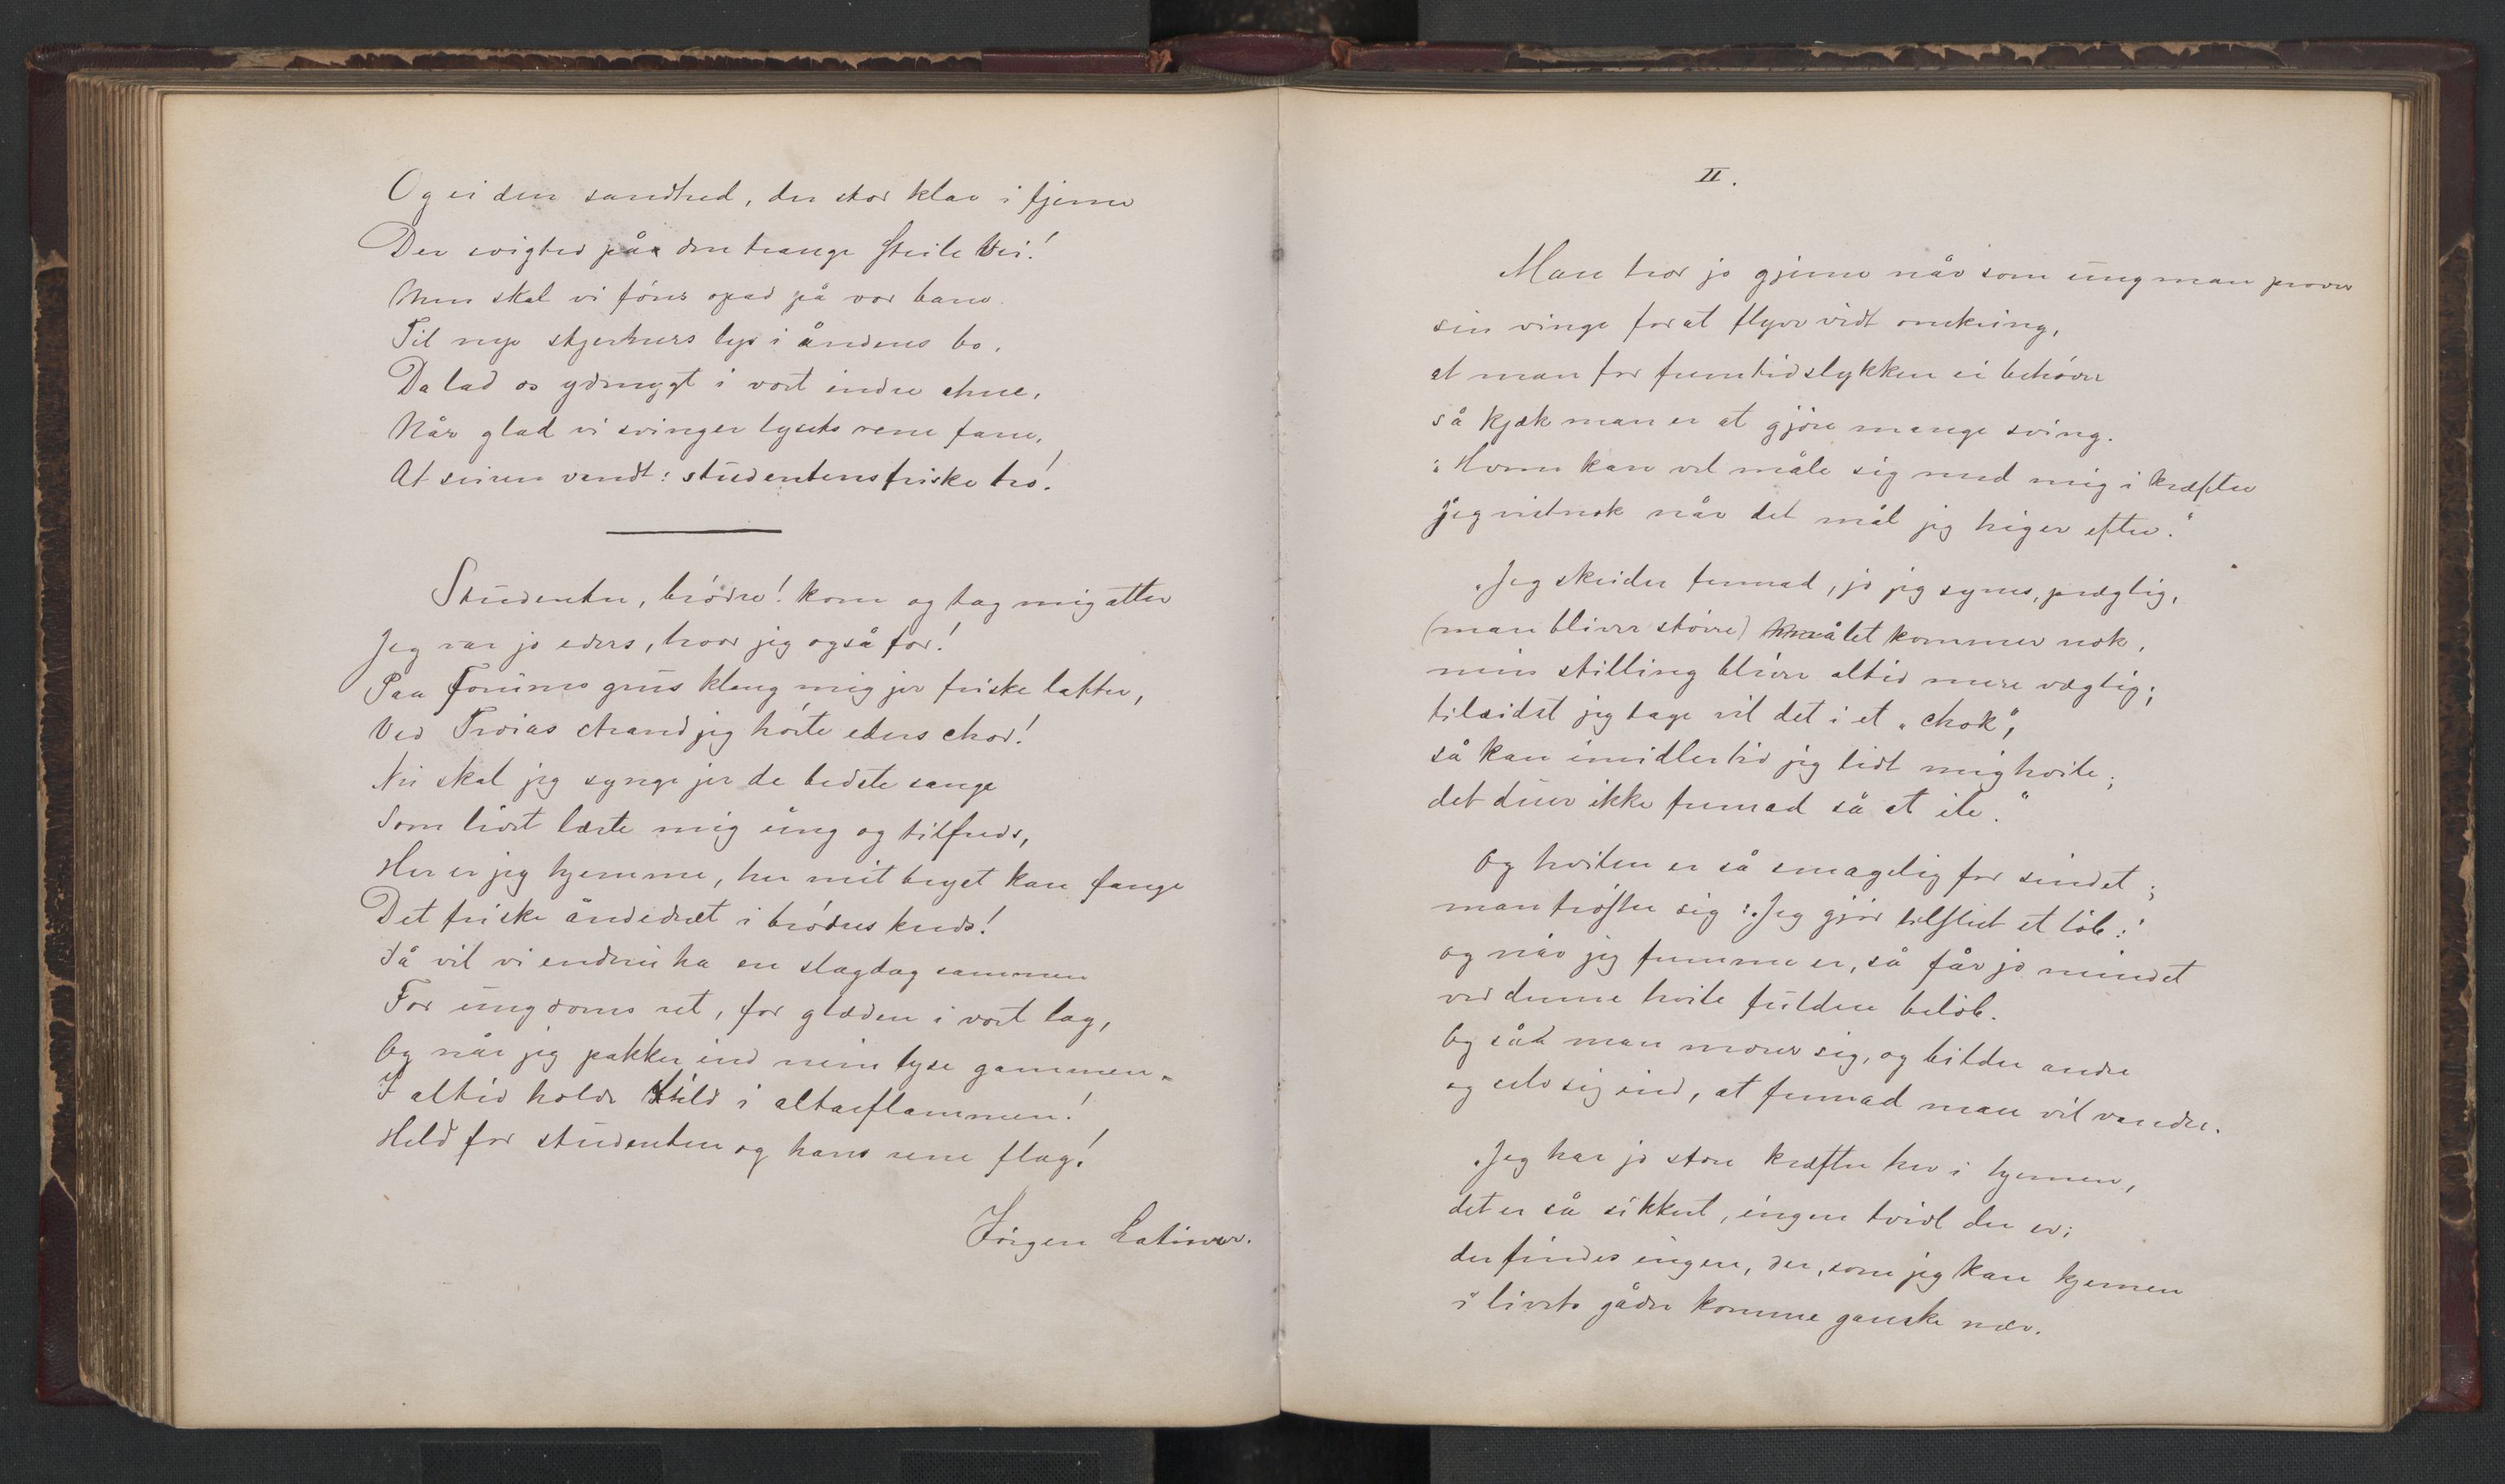 Og ei den sandhed, der stor klar i fjerne
Der svigted på den trange steile Vei!
Men skal vi føres opad på vor bane
Til nye stjerners lys i åndens bo,
Da lad os ydmygt i vort indre ahne,
Når glad vi svinger lysets rene fane,
At seiren vandt: studentens friske tro!
Studenter, brødre! kom og tag mig atter
Jeg var jo eders, hvor jeg også for!
Paa Forums grus klang mig jer friske latter,
Ved Troias strand jeg hørte eders chor!
Nu skal jeg synge jer de bedste sange
Som livet lærte mig ung og tilfreds,
Her er jeg hjemme, her mit bryst kan fange
Det friske åndedræt i brødres kreds!
Så vil vi endnu ha en slagdag sammen
For ungdoms ret, for glæden i vort lag,
Og når jeg pakker ind min lyse gammen –
I altid holde Ild i altarflammen!
Held for studenten og hans rene flag!
Jørgen Latiner.
II.
Man tror jo gjerne når som ung man prøver
sin vinge for at flyve vidt omkring,
at man for fremtidslykken ei behøver
så kjæk man er at gjøre mange sving.
"Hvem kan vel måle sig med mig i kræfter
jeg vistnok når det mål jeg higer efter."
"Jeg skrider fremad, jo jeg synes, prægtig,
(man bliver større) målet kommer nok,
min stilling bliver altid mere vægtig;
tilsidst jeg tage vil det i et "chok",
så kan imidlertid jeg lidt mig hvile;
det duer ikke fremad så at ile."
Og hvilen er så smagelig for sindet;
man trøster sig: "Jeg gjør tilslut et løb:"
og når jeg fremme er, så får jo mindet
ved denne hvile fuldere beløb.
Og så man morer sig, og bilder andre
og selv sig ind, at fremad man vil vandre.
"Jeg har jo store kræfter her i hjernen,
det er så sikkert, ingen tvivl der er;
der findes ingen, der, som jeg kan kjernen
i livets gåde komme ganske nær.